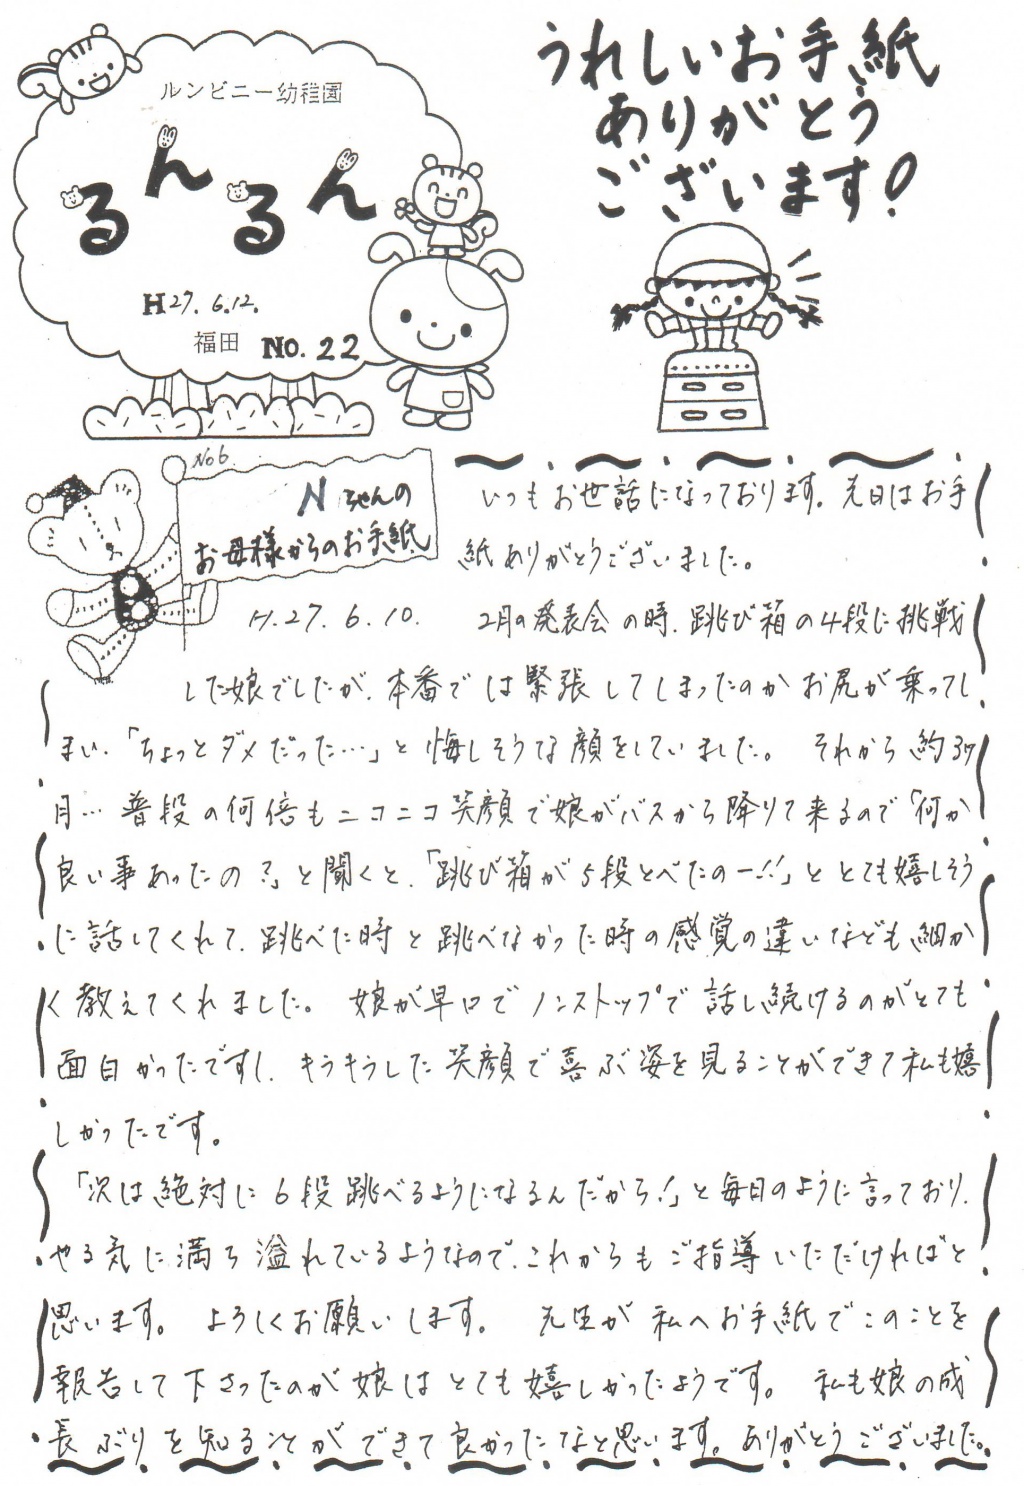 ルンビニー幼稚園
るんるん
H27.6.12.
福田 No.22
うれしいお手紙
ありがとう
ございます!
No6.
Nちゃんの
お母様からのお手紙
H.27.6.10.
いつもお世話になっております。先日はお手
紙ありがとうございました。
2月の発表会の時、跳び箱の4段に挑戦
した娘でしたが、本番では緊張してしまったのかお尻が乗ってし
まい、「ちょっとダメだった…」と悔しそうな顔をしていました。 それから約3ヶ
月… 普段の何倍もニコニコ笑顔で娘がバスから降りて来るので「何か
良い事あったの?」と聞くと、「跳び箱が5段とべたのー!!」ととても嬉しそう
に話してくれて、跳べた時と跳べなかった時の感覚の違いなども細か
く教えてくれました。 娘が早口でノンストップで話し続けるのがとても
面白かったですし、キラキラした笑顔で喜ぶ姿を見ることができて私も嬉
しかったです。
「次は絶対に6段跳べるようになるんだから!」と毎日のように言っており、
やる気に満ち溢れているようなので、これからもご指導いただければと
思います。 よろしくお願いします。 先生が私へお手紙でこのことを
報告して下さったのが娘はとても嬉しかったようです。 私も娘の成
長ぶりを知ることができて良かったなと思います。ありがとうございました。